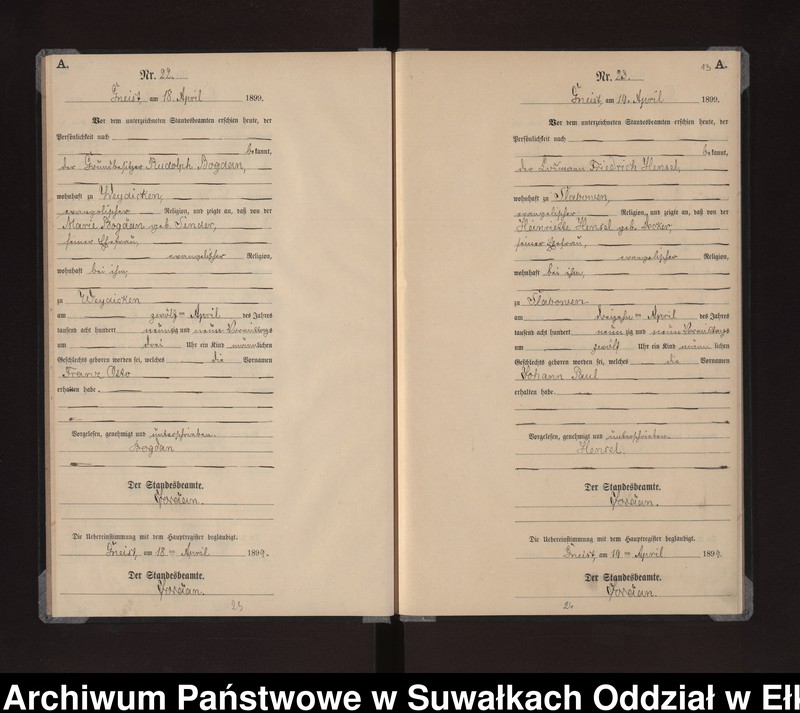 A.
Nr. 22.
Gneist, am 18. April 1899.
Vor dem unterzeichneten Standesbeamten erschien heute, der
Persönlichkeit nach
bekannt,
der Grundbesitzer Rudolph Bogdan,
wohnhaft zu Weydicken,
evangelischer Religion, und zeigte an, daß von der
Marie Bogdan geb.
seiner Ehefrau,
evangelischer Religion,
wohnhaft bei ihm,
zu Weydicken
am zwölf ten April des Jahres
tausend acht hundert neunzig und neun Vormittags
um drei Uhr ein Kind männlichen
Geschlechts geboren worden sei, welches die Vornamen
Franz Otto
erhalten habe.
Vorgelesen, genehmigt und unterschrieben.
Bogdan
Der Standesbeamte.
Die Uebereinstimmung mit dem Hauptregister beglaubigt.
Gneist, am 18 ten April 1899.
Der Standesbeamte.
25
13 A.
Nr. 23.
Gneist, am 19. April 1899.
Vor dem unterzeichneten Standesbeamten erschien heute, der
Persönlichkeit nach
bekannt,
der Losmann Friedrich Hensel,
wohnhaft zu
evangelischer Religion, und zeigte an, daß von der
Heinriette Hensel geb.
seiner Ehefrau,
evangelischer Religion,
wohnhaft bei ihm,
zu
am dreizehn ten April des Jahres
tausend acht hundert neunzig und neun Vormittags
um zwölf Uhr ein Kind männlichen
Geschlechts geboren worden sei, welches die Vornamen
Johann Paul
erhalten habe.
Vorgelesen, genehmigt und unterschrieben.
Hensel.
Der Standesbeamte.
Die Uebereinstimmung mit dem Hauptregister beglaubigt.
Gneist, am 19 ten April 1899.
Der Standesbeamte.
26
Archiwum Państwowe w Suwałkach Oddział w Ełk